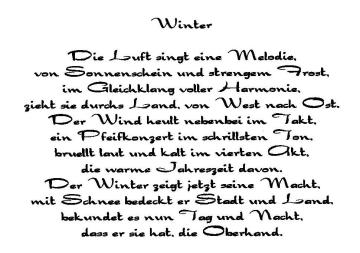 Winter
Die Luft singt eine Melodie,
von Sonnenschein und strengem Frost,
im Gleichklang voller Harmonie,
zieht sie durchs Land, von West nach Ost.
Der Wind heult nebenbei im Takt,
ein Pfeifkonzert im schrillsten Ton,
bruellt laut und kalt im vierten Akt,
die warme Jahreszeit davon.
Der Winter zeigt jetzt seine Macht,
mit Schnee bedeckt er Stadt und Land,
bekundet es nun Tag und Nacht,
dass er sie hat, die Oberhand.